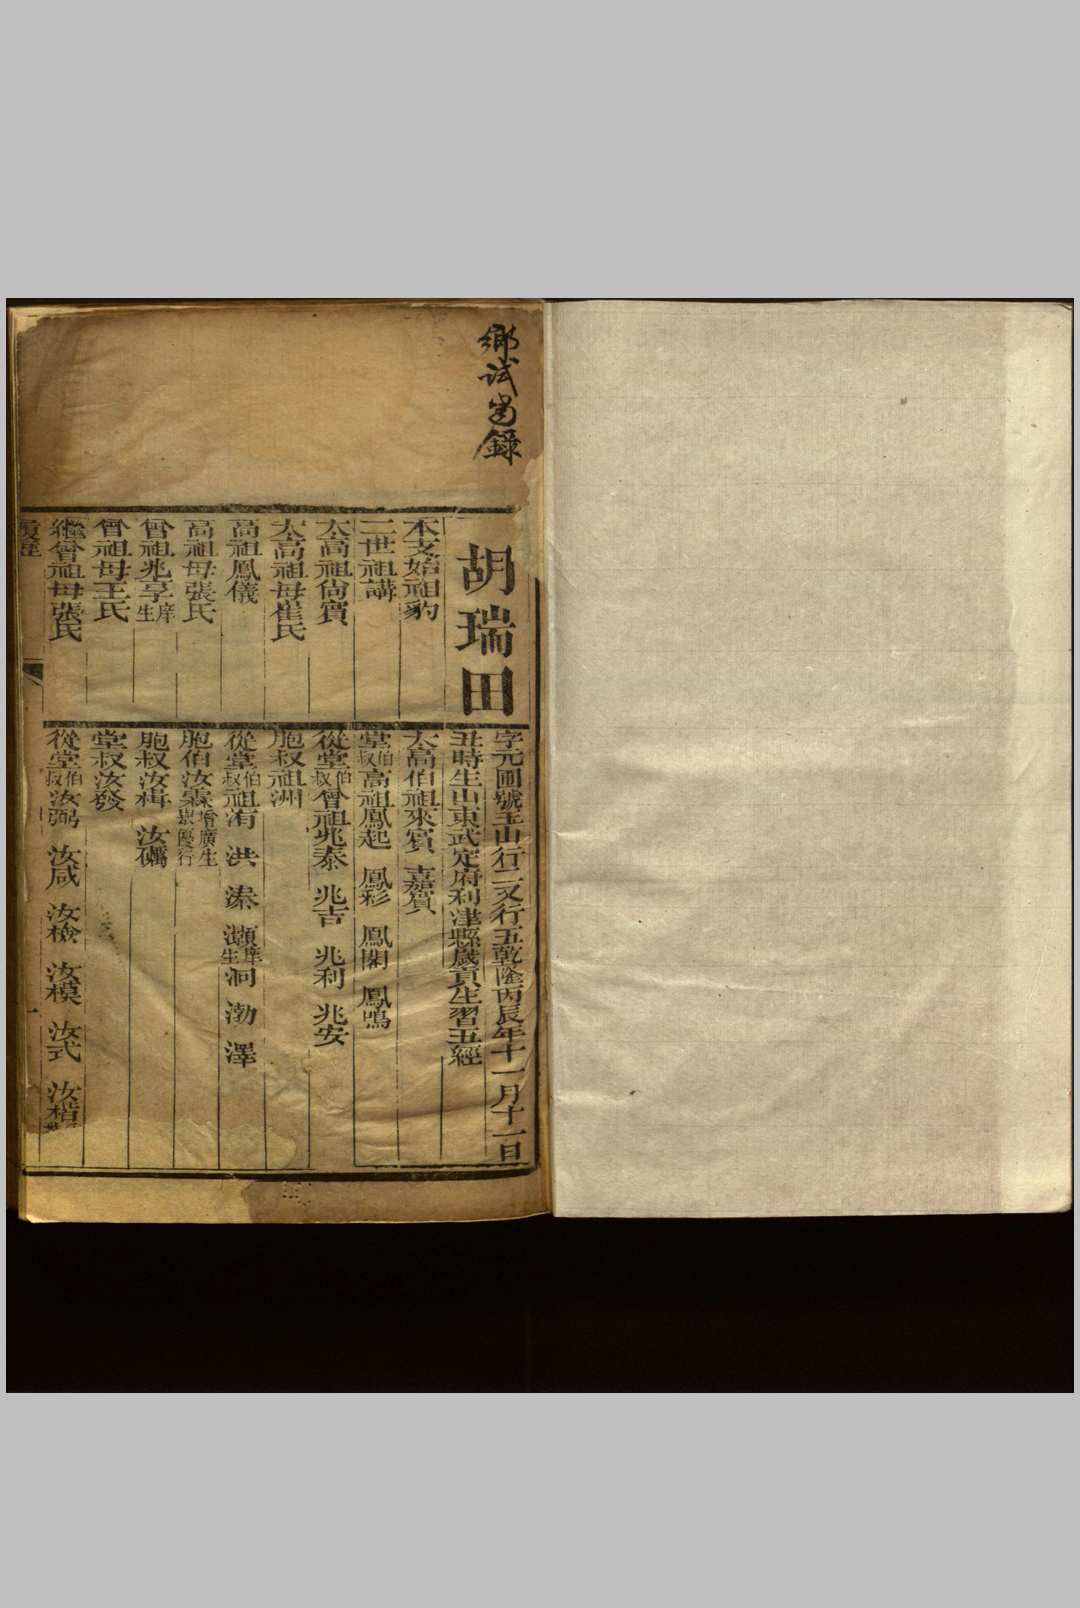 鄉試齒錄
胡瑞田
字元圃號玉山行二又行五乾隆丙辰年十一月十一日
丑時生山東武定府利津縣歲貢生習五經
本支始祖豹
二世祖講
太高祖尚賓
太高祖母崔氏
高祖鳳儀
高祖母張氏
曾祖兆享庠生
曾祖母王氏
繼曾祖母張氏
履歷
太高伯祖來賓 嘉賓
堂伯叔高祖鳳起 鳳彩 鳳閣 鳳鳴
從堂伯叔曾祖兆泰 兆吉 兆利 兆安
胞叔祖洲
從堂伯叔祖洧 洪 溱 灝庠生 泂 渤 澤
胞伯汝霖增廣生優行
胞叔汝楫 汝礪
堂叔汝發
從堂伯叔汝弼 汝咸 汝檢 汝模 汝式 汝楷
一